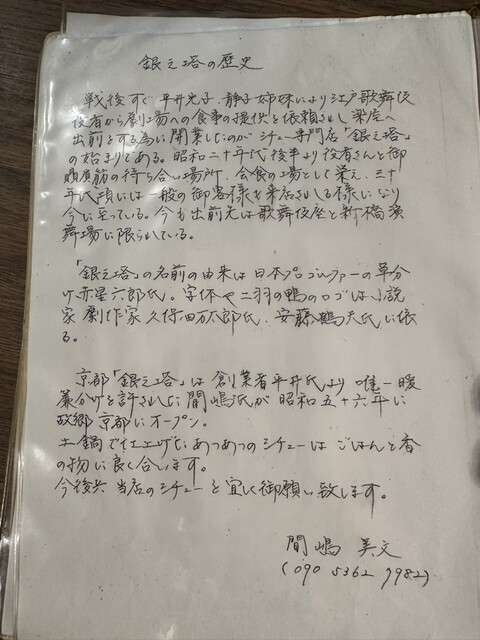 銀之塔の歴史
戦後すぐ平井光子、静子姉妹により江戸歌舞伎
役者から劇場への食事の提供を依頼され楽屋へ
出前をする為に開業したのがシチュー専門店「銀之塔」
の始まりである。昭和二十年代後半より役者さんと御
贔屓筋の待ち合い場所、会食の場として栄え、三十
年代頃には一般の御客様も来店される様になり
今に至っている。今も出前先は歌舞伎座と新橋演
舞場に限られている。
「銀之塔」の名前の由来は日本プロゴルファーの草分
け赤星六郎氏。字体や二羽の鴨のロゴは小説
家劇作家久保田万太郎氏、安藤鶴夫氏に依
る。
京都「銀之塔」は創業者平井氏より唯一暖
簾分けを許された間嶋氏が昭和五十六年に
故郷京都にオープン。
土鍋で仕上げたあつあつのシチューはごはんと香
の物に良く合います。
今後共当店のシチューを宜しく御願い致します。
間嶋 美文
(090 5362 9982)